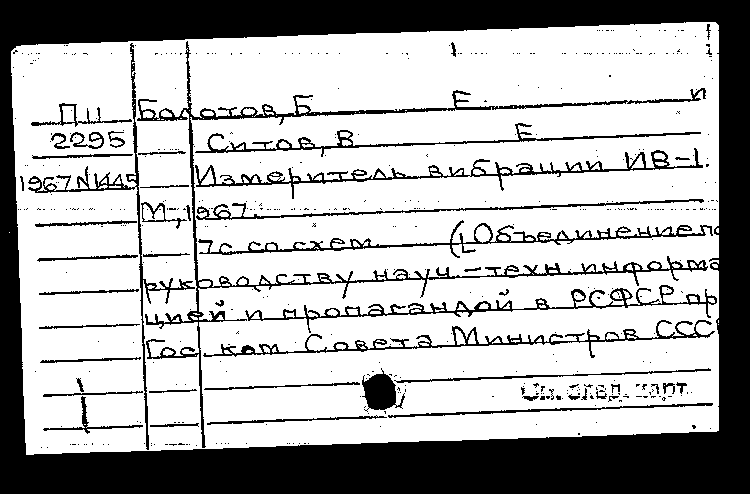 П11 Болотов, Б Е. и
2295 Ситов, В Е
1967 N И45 Измеритель вибрации ИВ-1.
М., 1967.
7с со схем. (Объединение по
руководству науч.-техн. информа
цией и пропагандой в РСФСР пр
Гос. ком Совета Министров СССР
См. след. карт.